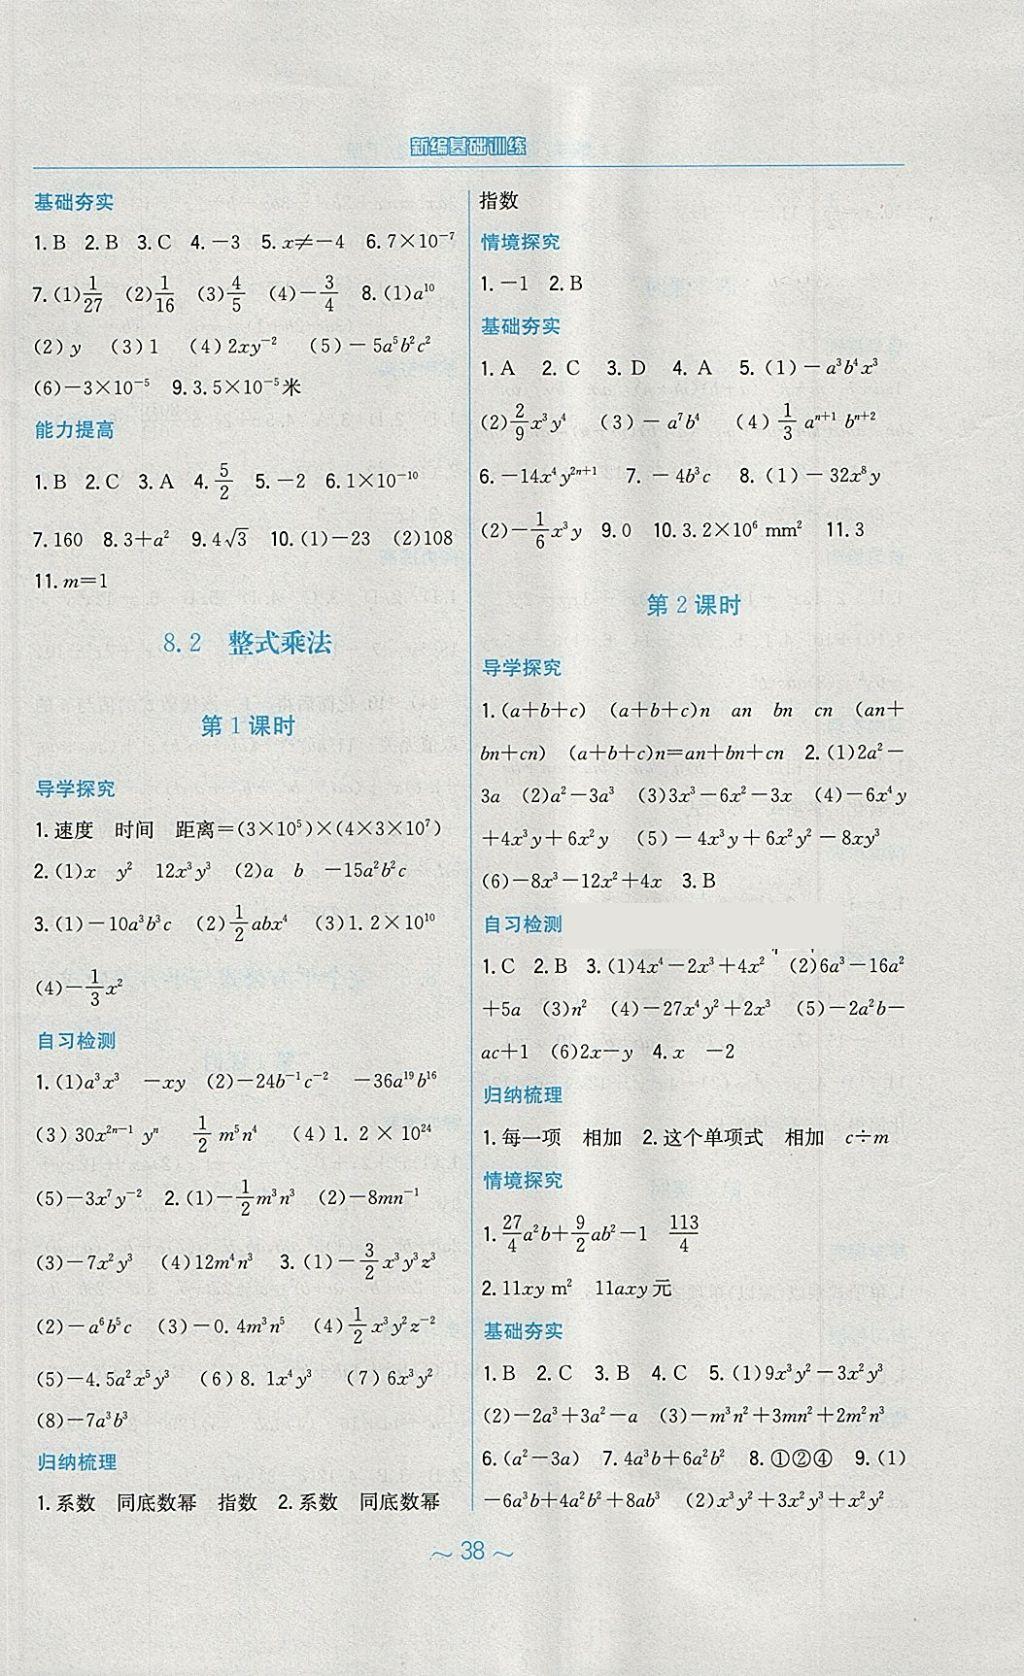 新编基础训练
基础夯实
1. B 2. B 3. C 4. －3 5. x≠－4 6. 7×10⁻⁷
7. (1)1/27 (2)1/16 (3)4/5 (4)－3/4 8. (1)a¹⁰
(2) y (3) 1 (4) 2xy⁻² (5)－5a⁵b²c²
(6)－3×10⁻⁵ 9. 3.5×10⁻⁵米
能力提高
1. B 2. C 3. A 4. 5/2 5. －2 6. 1×10⁻¹⁰
7. 160 8. 3＋a² 9. 4√3 10. (1)－23 (2)108
11. m＝1
8.2 整式乘法
第1课时
导学探究
1. 速度 时间 距离＝(3×10⁵)×(4×3×10⁷)
2. (1)x y² 12x³y³ (2)a b －15a²b²c
3. (1)－10a³b³c (2)1/2abx⁴ (3)1.2×10¹⁰
(4)－1/3x²
自习检测
1. (1)a³x³ －xy (2)－24b⁻¹c⁻² －36a¹⁹b¹⁶
(3) 30x²ⁿ⁻¹yⁿ 1/2m⁵n⁴ (4) 1.2×10²⁴
(5)－3x⁷y⁻² 2. (1)－1/2m³n³ (2)－8mn⁻¹
(3)－7x²y³ (4)12m⁴n³ 3. (1)－3/2x³y³z³
(2)－a⁶b⁵c (3)－0.4m³n⁵ (4)1/2x³y²z⁻²
(5)－4.5a²x⁵y³ (6) 8.1x⁴y³ (7) 6x³y²
(8)－7a³b³
归纳梳理
1. 系数 同底数幂 指数 2. 系数 同底数幂
指数
情境探究
1. －1 2. B
基础夯实
1. A 2. C 3. D 4. A 5. (1)－a³b⁴x³
(2)2/9x³y⁴ (3)－a⁷b⁴ (4)1/3aⁿ⁺¹bⁿ⁺²
6. －14x⁴y²ⁿ⁺¹ 7. －4b³c 8. (1)－32x⁸y
(2)－1/6x³y 9. 0 10. 3.2×10⁶ mm² 11. 3
第2课时
导学探究
1. (a＋b＋c) (a＋b＋c)n an bn cn (an＋
bn＋cn) (a＋b＋c)n＝an＋bn＋cn 2. (1)2a²－
3a (2)a²－3a³ (3)3x³－6x²－3x (4)－6x⁴y
＋4x³y＋6x²y (5)－4x³y＋6x²y²－8xy³
(6)－8x³－12x²＋4x 3. B
自习检测
1. C 2. B 3. (1)4x⁴－2x³＋4x² (2)6a³－16a²
＋5a (3)n² (4)－27x⁴y²＋2x³ (5)－2a²b－
ac＋1 (6)2x－y 4. x －2
归纳梳理
1. 每一项 相加 2. 这个单项式 相加 c÷m
情境探究
1. 27/4a²b＋9/2ab²－1 113/4
2. 11xy m² 11axy元
基础夯实
1. B 2. C 3. B 4. C 5. (1)9x³y²－3x²y³
(2)－2a³＋3a²－a (3)－m³n²＋3mn²＋2m²n³
6. (a²－3a) 7. 4a³b＋6a²b² 8. ①②④ 9. (1)
－6a³b＋4a²b²＋8ab³ (2)x³y²＋3x²y³＋x²y²
～ 38 ～